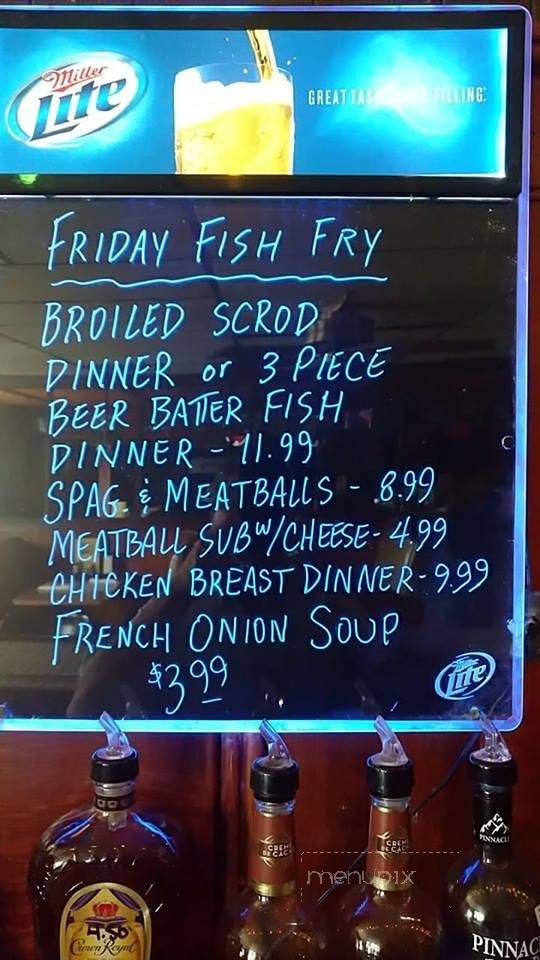 Miller
Lite
GREAT TAS FILLING.
FRIDAY FISH FRY
BROILED SCROD
DINNER or 3 PIECE
BEER BATTER FISH
DINNER - 11.99
SPAG. & MEATBALLS - 8.99
MEATBALL SUB W/CHEESE - 4.99
CHICKEN BREAST DINNER - 9.99
FRENCH ONION SOUP
$3.99
Miller
Lite
CREME
DE CACAO
CREME
DE CAC
PINNACLE
menupix
4.50
Crown Royal
PINNAC